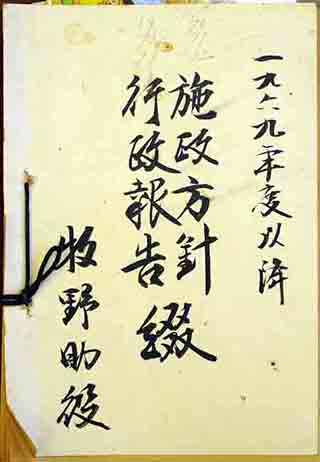 一九六九年度以降
施政方針
行政報告綴
牧野助役